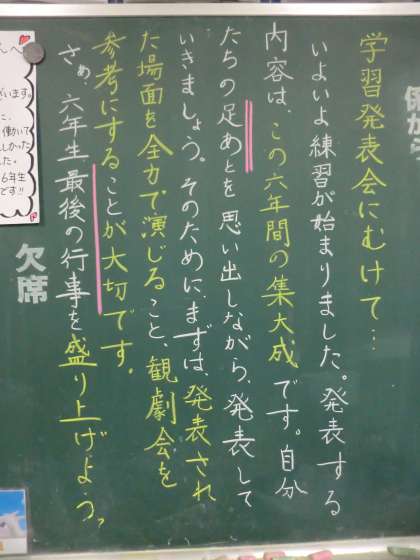 学習発表会にむけて…
いよいよ練習が始まりました。発表する
内容は、この六年間の集大成です。自分
たちの足あとを思い出しながら、発表して
いきましょう。そのために、まずは、発表され
た場面を全力で演じること、観劇会を
参考にすることが大切です。
さぁ、六年生最後の行事を盛り上げよう。
欠席
んへ
ざいます。
に、
働いて
しかった
した。
6年生
です!!